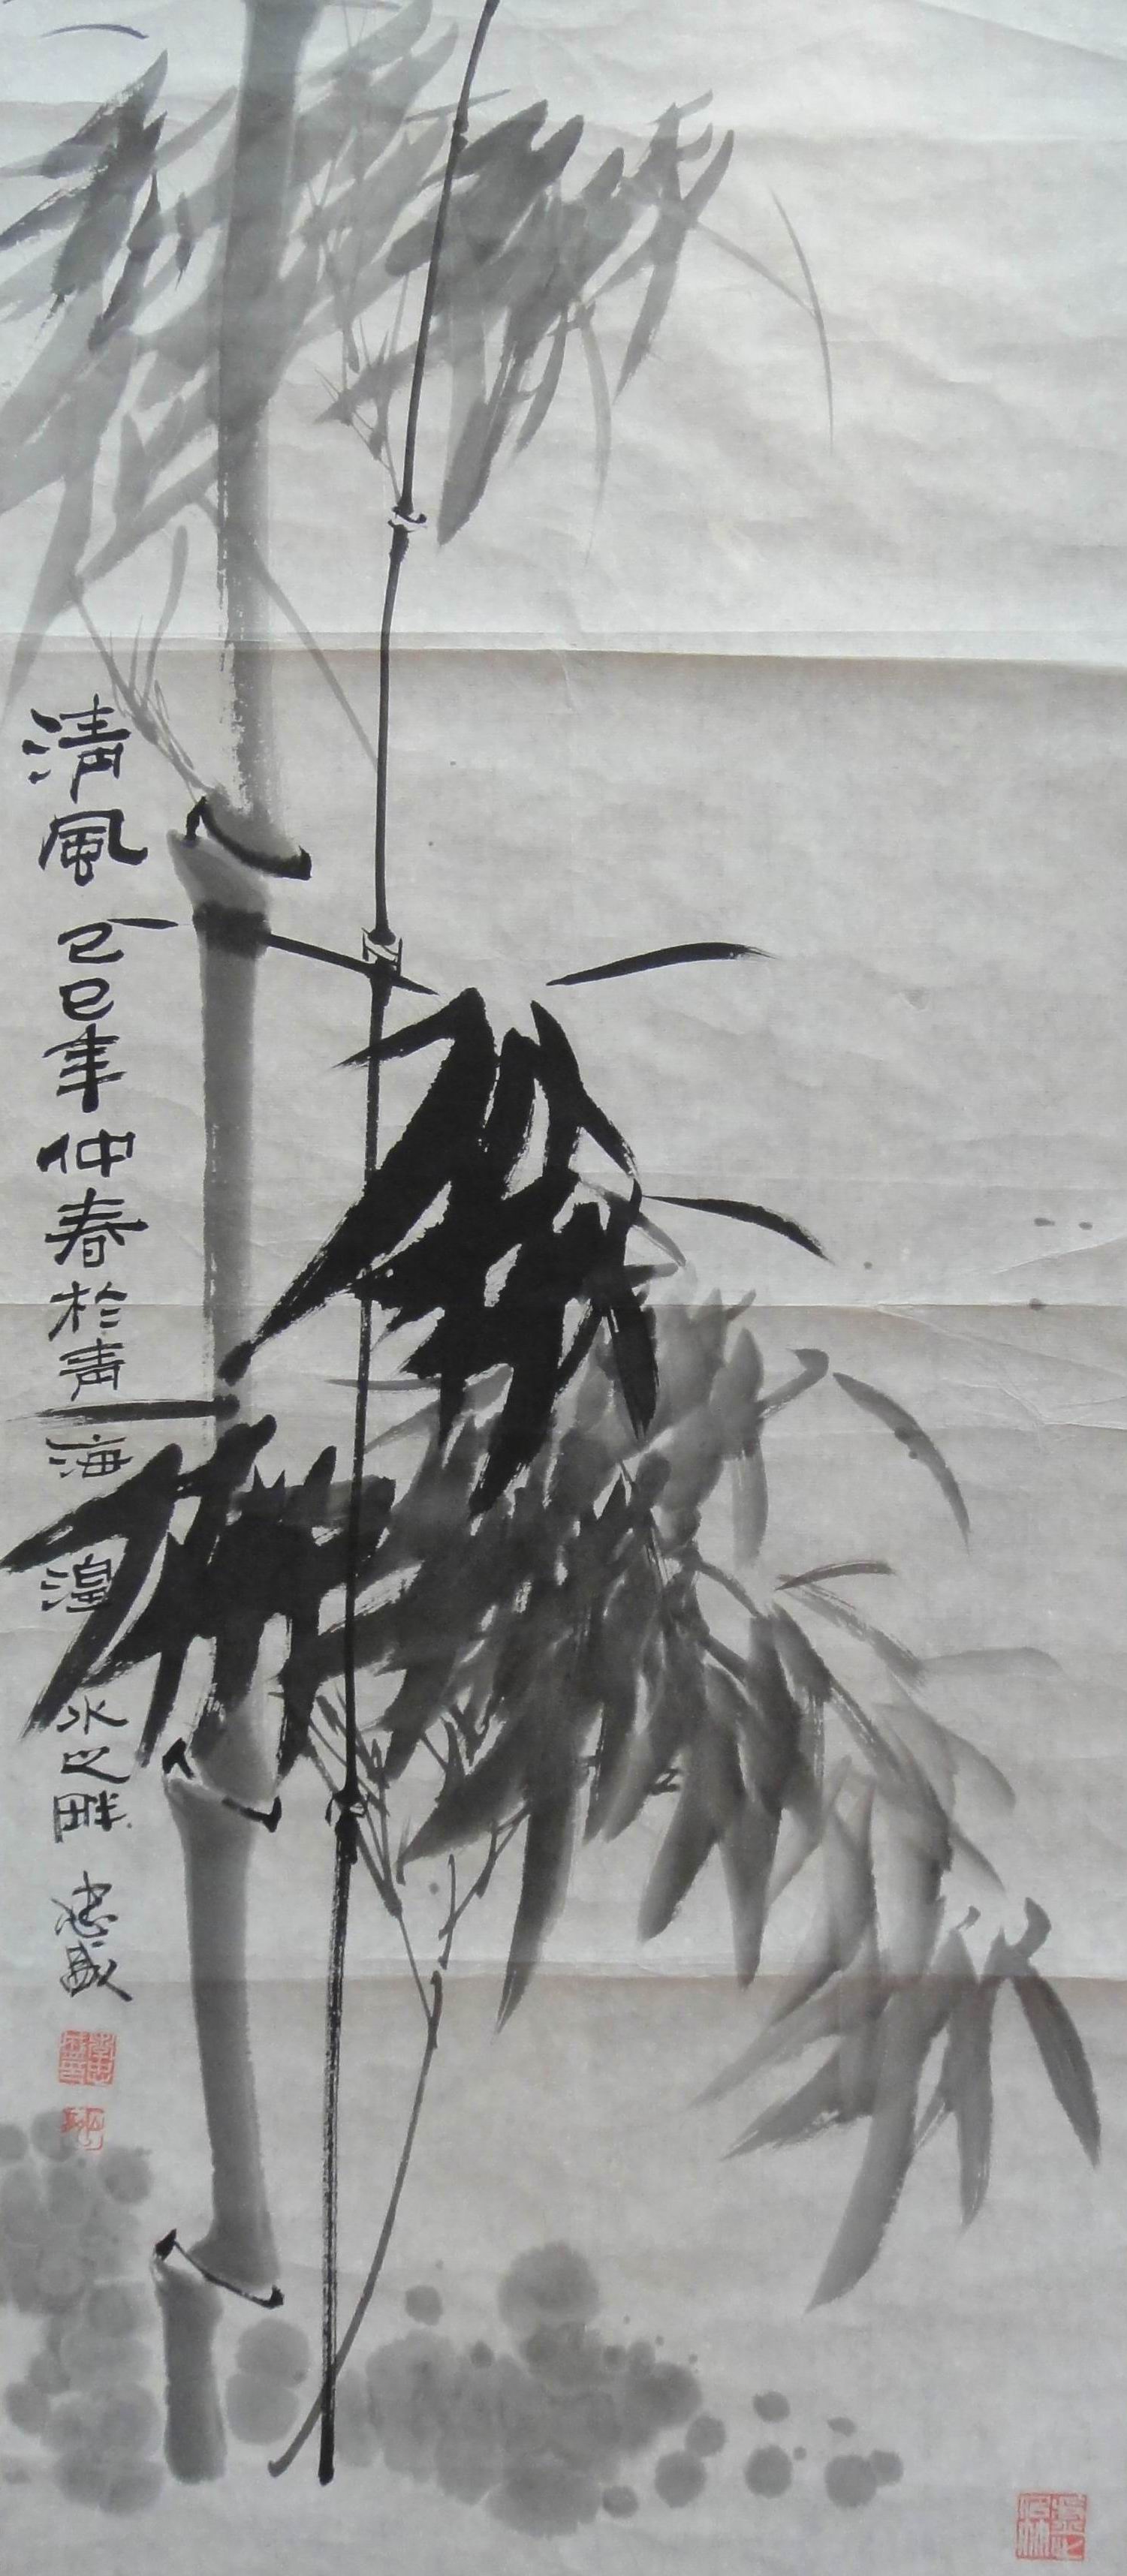 清風 己巳年仲春於青海湟水之畔 忠盛